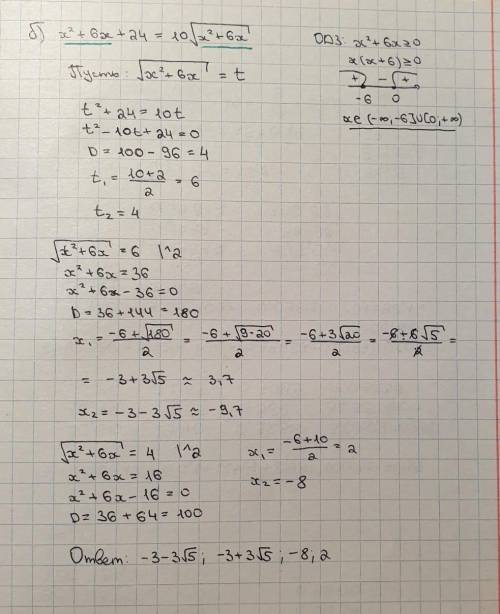 б) x² + 6x + 24 = 10√(x² + 6x)
Пусть: √(x² + 6x) = t
t² + 24 = 10t
t² - 10t + 24 = 0
D = 100 - 96 = 4
t₁ = (10 + 2)/2 = 6
t₂ = 4
ОДЗ: x² + 6x ≥ 0
x(x + 6) ≥ 0
+ - +
-6 0
x ∈ (-∞, -6] ∪ [0, +∞)
√(x² + 6x) = 6 |^2
x² + 6x = 36
x² + 6x - 36 = 0
D = 36 + 144 = 180
x₁ = (-6 + √180)/2 = (-6 + √(9·20))/2 = (-6 + 3√20)/2 = (-6 + 6√5)/2 =
= -3 + 3√5 ≈ 3,7
x₂ = -3 - 3√5 ≈ -9,7
√(x² + 6x) = 4 |^2
x² + 6x = 16
x² + 6x - 16 = 0
D = 36 + 64 = 100
x₁ = (-6 + 10)/2 = 2
x₂ = -8
Ответ: -3 - 3√5; -3 + 3√5; -8; 2